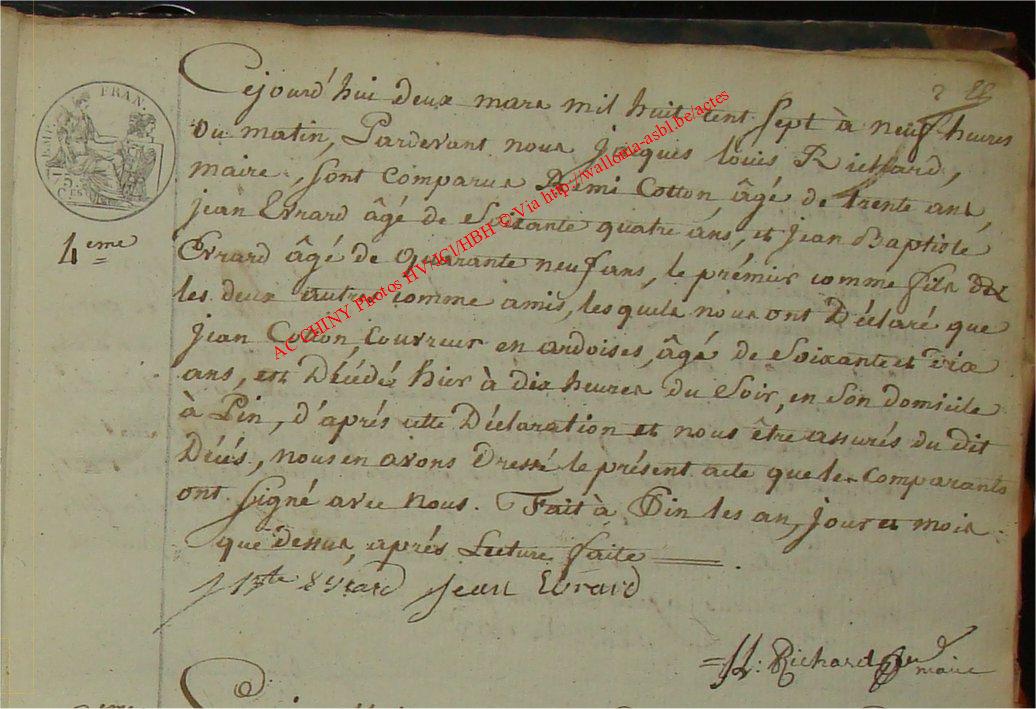 FRAN.
4eme
Cejourd'hui deux mars mil huit cent Sept à neuf heures
du matin, Pardevant nous Jacques Louis Richard,
maire, sont comparus Remi Cotton, âgé de trente ans,
jean Evrard âgé de Soixante quatre ans, et jean Baptiste
Evrard âgé de Quarante neuf ans, le prémier comme fils
les deux autres comme amis, lesquels nous ont Déclaré que
jean Cotton, Couvreur en ardoises, âgé de Soixante et dix
ans, est Décédé hier à dix heures du Soir, en Son domicile
à Pin, d'aprés cette Déclaration et nous être assurés du dit
Décés, nous en avons Dressé le présent acte que les comparants
ont signé avec nous. Fait à Pin les an, jour et mois
que dessus, aprés Lecture faite
Jean Evrard
Richard
maire
AC CHINY Photos HV-ACI/HBH © Via http://wallonia-asbl.be/actes